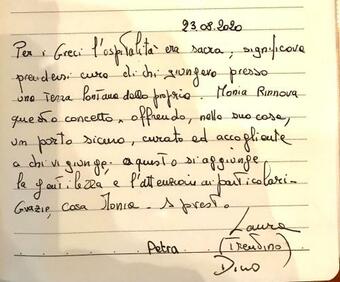 23.08.2020
Per i Greci l'ospitalità era sacra, significava
prendersi cura di chi giungeva presso
una terra lontana dalla propria. Monia Rinnova
questo concetto, offrendo, nella sua casa,
un porto sicuro, curato ed accogliente
a chi vi giunge; a questo si aggiunge
la gentilezza e l'attenzione ai particolari.
Grazie, casa Monia. A presto.
Laura
Petra (Trentino)
Dino